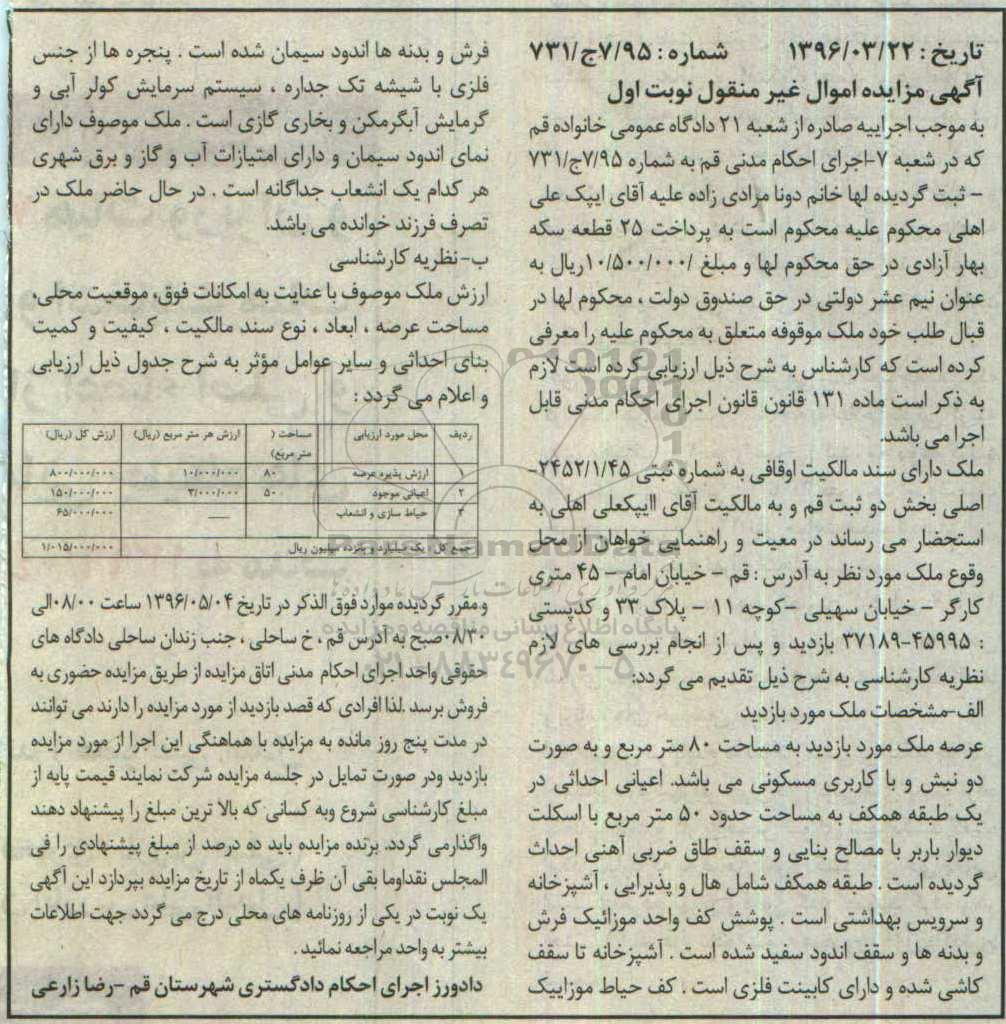 تاریخ : ۱۳۹۶/۰۳/۲۲ شماره : ۷/۹۵ج/۷۳۱
آگهی مزایده اموال غیر منقول نوبت اول
به موجب اجراییه صادره از شعبه ۲۱ دادگاه عمومی خانواده قم
که در شعبه ۷-اجرای احکام مدنی قم به شماره ۷/۹۵ج/۷۳۱
- ثبت گردیده لها خانم دونا مرادی زاده علیه آقای ایپک علی
اهلی محکوم علیه محکوم است به پرداخت ۲۵ قطعه سکه
بهار آزادی در حق محکوم لها و مبلغ /۱۰/۵۰۰/۰۰۰ریال به
عنوان نیم عشر دولتی در حق صندوق دولت ، محکوم لها در
قبال طلب خود ملک موقوفه متعلق به محکوم علیه را معرفی
کرده است که کارشناس به شرح ذیل ارزیابی کرده است لازم
به ذکر است ماده ۱۳۱ قانون قانون اجرای احکام مدنی قابل
اجرا می باشد.
ملک دارای سند مالکیت اوقافی به شماره ثبتی ۲۴۵۲/۱/۴۵-
اصلی بخش دو ثبت قم و به مالکیت آقای اایپکعلی اهلی به
استحضار می رساند در معیت و راهنمایی خواهان از محل
وقوع ملک مورد نظر به آدرس : قم - خیابان امام - ۴۵ متری
کارگر - خیابان سهیلی -کوچه ۱۱ - پلاک ۳۳ و کدپستی
: ۴۵۹۹۵-۳۷۱۸۹ بازدید و پس از انجام بررسی های لازم
نظریه کارشناسی به شرح ذیل تقدیم می گردد:
الف-مشخصات ملک مورد بازدید
عرصه ملک مورد بازدید به مساحت ۸۰ متر مربع و به صورت
دو نبش و با کاربری مسکونی می باشد. اعیانی احداثی در
یک طبقه همکف به مساحت حدود ۵۰ متر مربع با اسکلت
دیوار باربر با مصالح بنایی و سقف طاق ضربی آهنی احداث
گردیده است . طبقه همکف شامل هال و پذیرایی ، آشپزخانه
و سرویس بهداشتی است . پوشش کف واحد موزائیک فرش
و بدنه ها و سقف اندود سفید شده است . آشپزخانه تا سقف
کاشی شده و دارای کابینت فلزی است . کف حیاط موزاییک
فرش و بدنه ها اندود سیمان شده است . پنجره ها از جنس
فلزی با شیشه تک جداره ، سیستم سرمایش کولر آبی و
گرمایش آبگرمکن و بخاری گازی است . ملک موصوف دارای
نمای اندود سیمان و دارای امتیازات آب و گاز و برق شهری
هر کدام یک انشعاب جداگانه است . در حال حاضر ملک در
تصرف فرزند خوانده می باشد.
ب-نظریه کارشناسی
ارزش ملک موصوف با عنایت به امکانات فوق، موقعیت محلی،
مساحت عرصه ، ابعاد ، نوع سند مالکیت ، کیفیت و کمیت
بنای احداثی و سایر عوامل مؤثر به شرح جدول ذیل ارزیابی
و اعلام می گردد :
ردیف محل مورد ارزیابی مساحت ( متر مربع) ارزش هر متر مربع (ریال) ارزش کل (ریال)
۱ ارزش پذیره عرصه ۸۰ ۱۰/۰۰۰/۰۰۰ ۸۰۰/۰۰۰/۰۰۰
۲ اعیانی موجود ۵۰ ۳/۰۰۰/۰۰۰ ۱۵۰/۰۰۰/۰۰۰
۳ حیاط سازی و انشعاب — ۶۵/۰۰۰/۰۰۰
جمع کل : یک میلیارد و پانزده میلیون ریال ۱/۰۱۵/۰۰۰/۰۰۰
و مقرر گردیده موارد فوق الذکر در تاریخ ۱۳۹۶/۰۵/۰۴ ساعت ۰۸/۰۰الی
۰۸/۳۰صبح به آدرس قم ، خ ساحلی ، جنب زندان ساحلی دادگاه های
حقوقی واحد اجرای احکام مدنی اتاق مزایده از طریق مزایده حضوری به
فروش برسد .لذا افرادی که قصد بازدید از مورد مزایده را دارند می توانند
در مدت پنج روز مانده به مزایده با هماهنگی این اجرا از مورد مزایده
بازدید ودر صورت تمایل در جلسه مزایده شرکت نمایند قیمت پایه از
مبلغ کارشناسی شروع وبه کسانی که بالا ترین مبلغ را پیشنهاد دهند
واگذارمی گردد. برنده مزایده باید ده درصد از مبلغ پیشنهادی را فی
المجلس نقداوما بقی آن ظرف یکماه از تاریخ مزایده بپردازد این آگهی
یک نوبت در یکی از روزنامه های محلی درج می گردد جهت اطلاعات
بیشتر به واحد مراجعه نمائید .
دادورز اجرای احکام دادگستری شهرستان قم -رضا زارعی
ParsNamadData
پایگاه اطلاع رسانی مناقصه و مزایده
۰۲۱-۸۸۳۴۹۶۷۰-۵